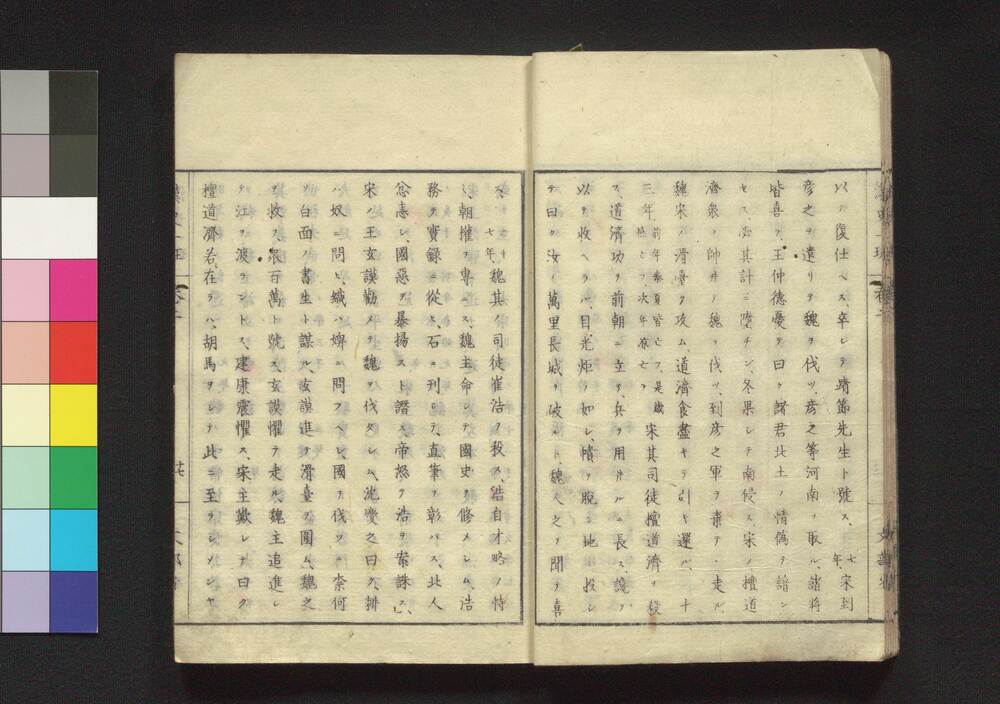 以テ復仕ヘス、卒シテ靖節先生ト號ス、七年、宋到
彦之ヲ遣リテ魏ヲ伐ツ、彦之等河南ヲ取ル、諸將
皆喜フ、王仲德憂テ曰ク諸君北土ノ情僞ヲ諳ン
セス、必其計ニ墮チン、冬果シテ南侵ス、宋ノ檀道
濟衆ヲ帥井テ魏ヲ伐ツ、到彦之軍ヲ棄テヽ走ル、
魏宋ノ滑臺ヲ攻ム、道濟食盡キテ引キ還ル、十
三年、是歲宋其司徒檀道濟ヲ殺
ス、道濟功ヲ前朝ニ立ツ、兵ヲ用井ルニ長ス、讒ヲ
以テ收ヘラル、目光炬ノ如シ、幘ヲ脫シ地ニ投シ
テ曰ク汝ノ萬里長城ヲ破ルト、魏人之ヲ聞テ喜
フ、七年、魏其ノ司徒崔浩ヲ殺ス、浩自才略ヲ恃
ミ、朝權ヲ專ニス、魏主命シテ國史ヲ修メシム、浩
務テ實錄ニ從ヒ、石ニ刊シテ、直筆ヲ彰ハス、北人
忿恚シ、國惡ヲ暴揚スト譖ス、帝怒ク浩ヲ案誅ス、
宋ノ王玄謨勸メテ魏ヲ伐タシム、沈慶之曰ク、耕
ハ奴ニ問ヒ、織ハ婢ニ問フヘシ、國ヲ伐ツニ奈何
ソ白面ノ書生ト謀ル、玄謨進テ滑臺ヲ圍ム、魏之
ヲ救ス、衆百萬ト號ス、玄謨懼テ走ル、魏主追進シ
テ江ヲ渡ラントス、建康震懼ス、宋主歎シテ曰ク
檀道濟若在ラハ、胡馬ヲシテ此ニ至ラシメンヤ
廿